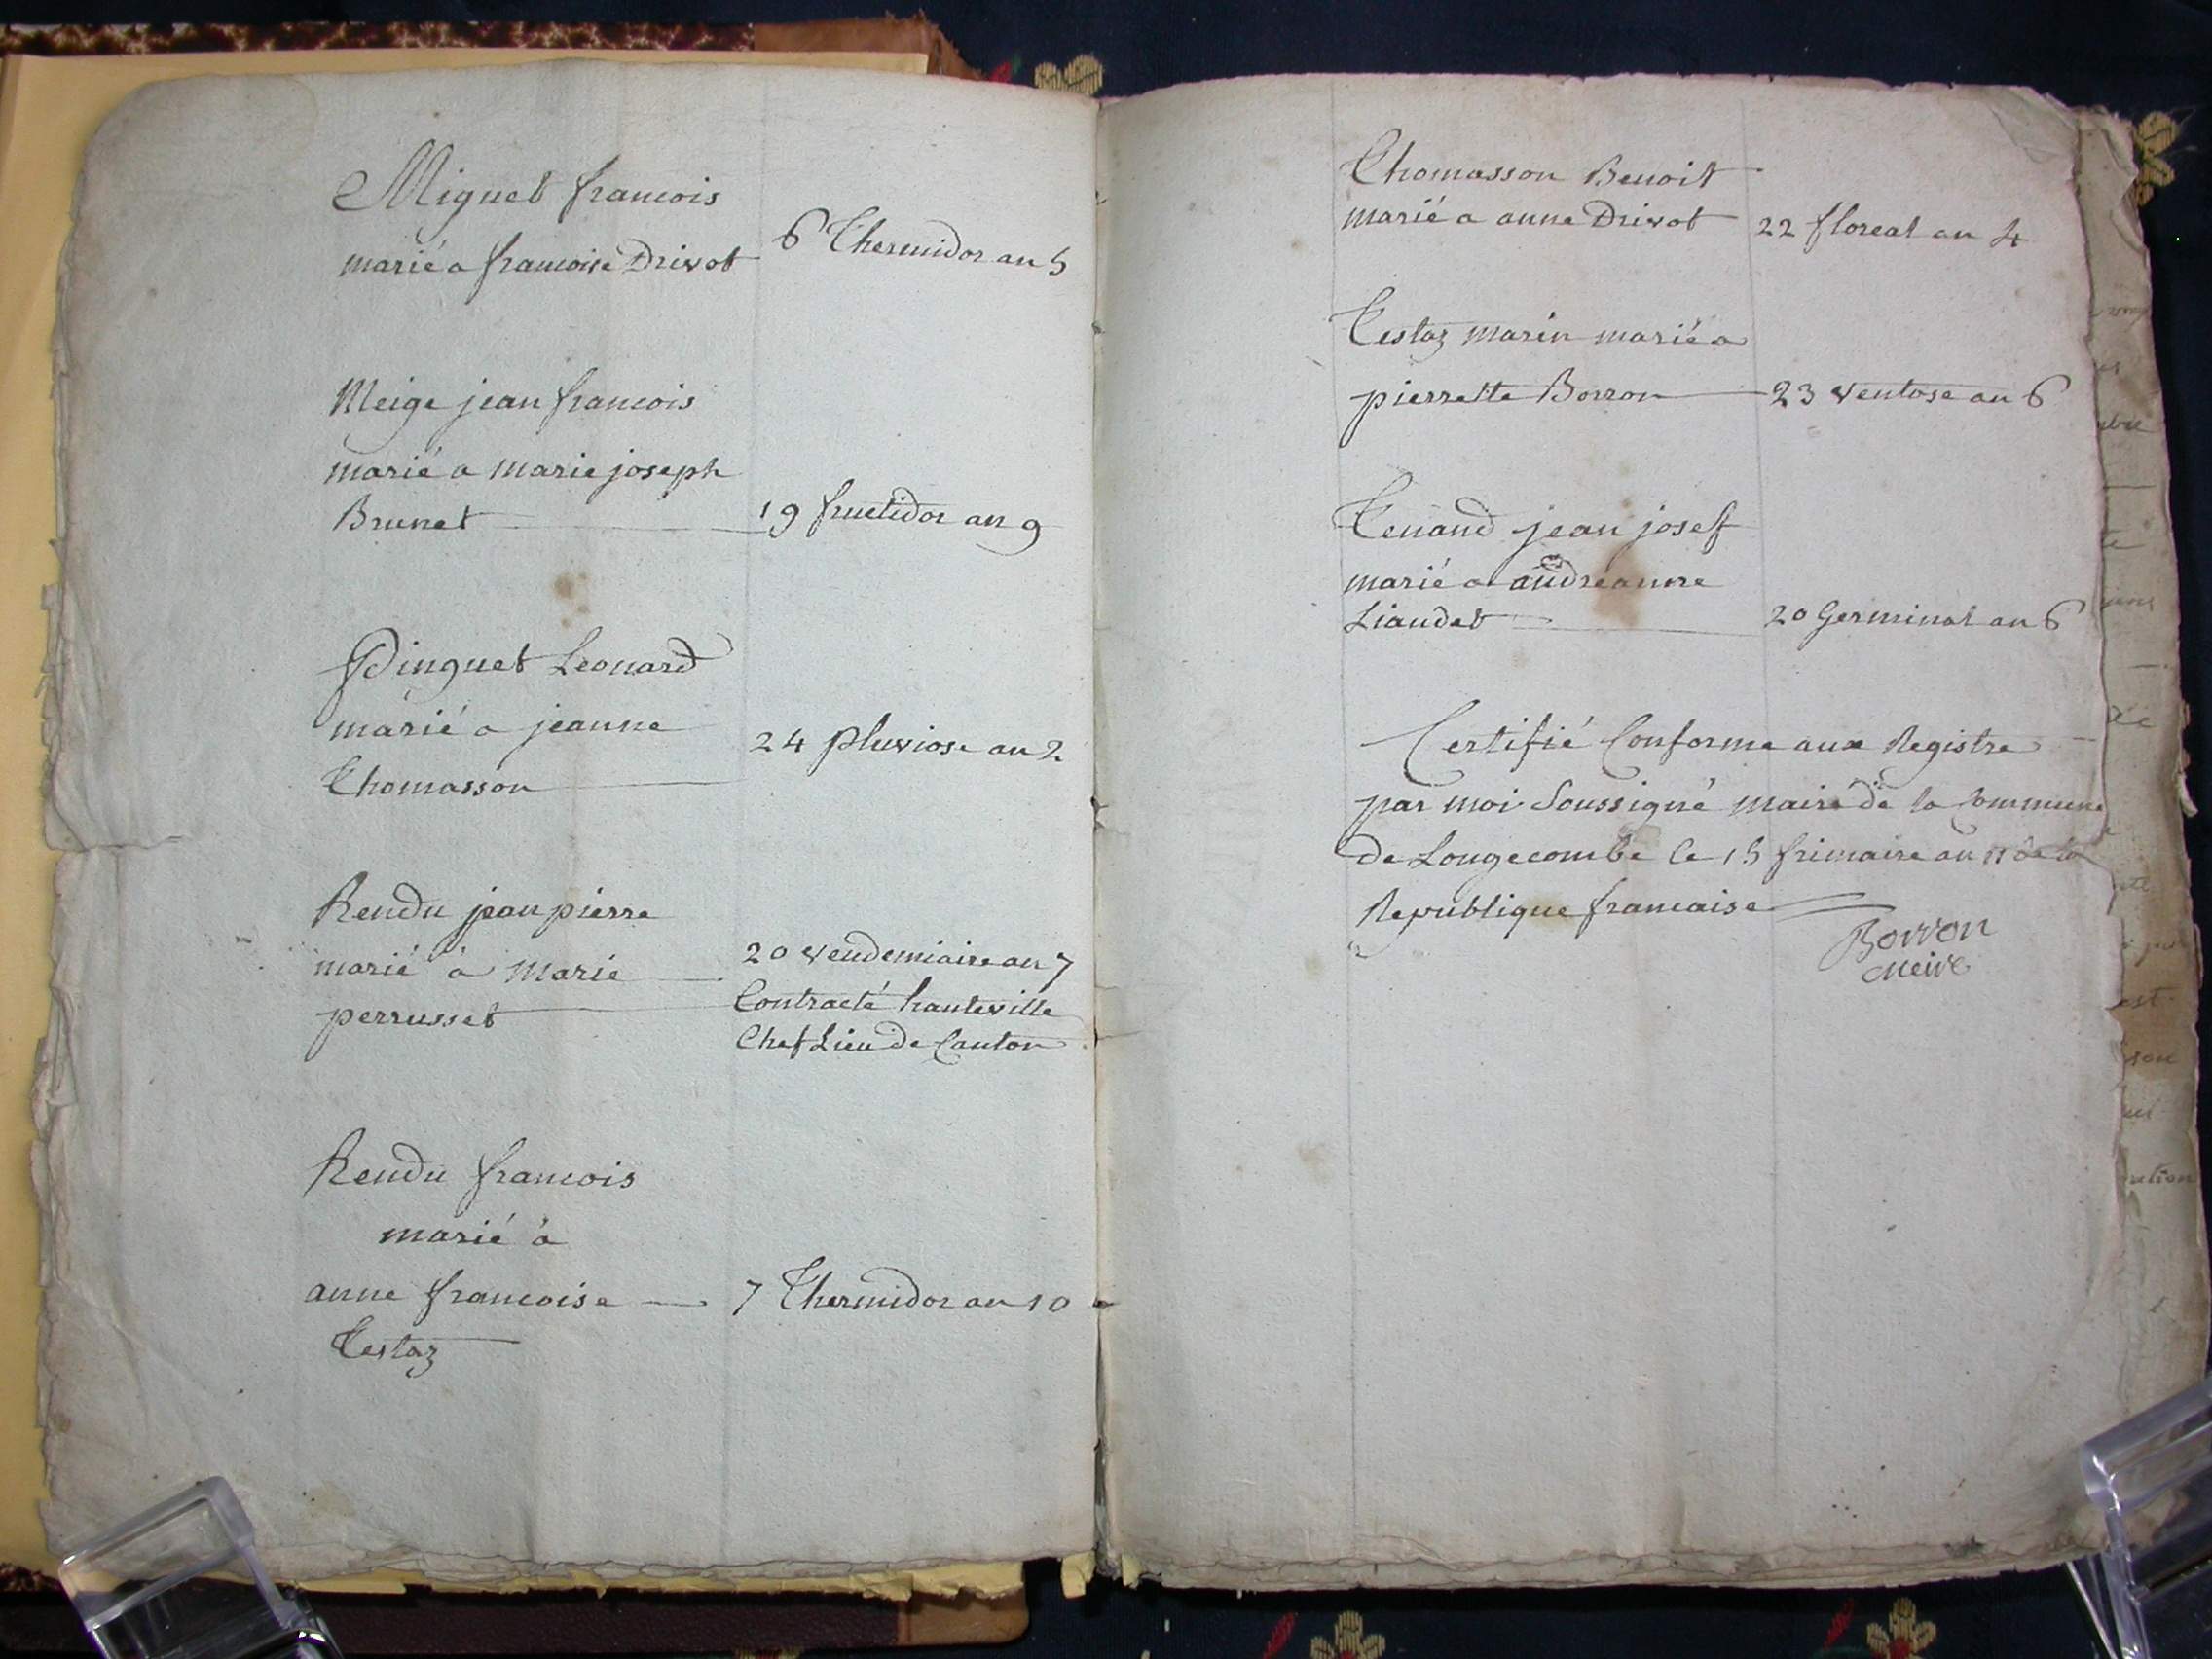 Miguet francois
marié a francoise Drivot
6 Thermidor an 5
Meige jean francois
marié a marie joseph
Brunet
19 fructidor an 9
Pinguet Leonard
marié a jeanne
Thomasson
24 pluviose an 2
Rendu jean pierre
marié à Marie
perrusset
20 vendemiaire an 7
Contracté hauteville
Chef Lieu de Canton
Rendu francois
marié à
anne francoise
Testaz
7 Thermidor an 10
Thomasson Benoit
marié a anne Drivot
22 floreal an 4
Testaz marin marié a
pierrette Borron
23 ventose an 6
Tenand jean josef
marié a andréanne
Liaudet
20 Germinal an 6
Certifié Conforme aux Registre
par moi Soussigné maire de la Commune
de Longecombe le 15 frimaire an 11 de la
Republique francaise
Borron
meire